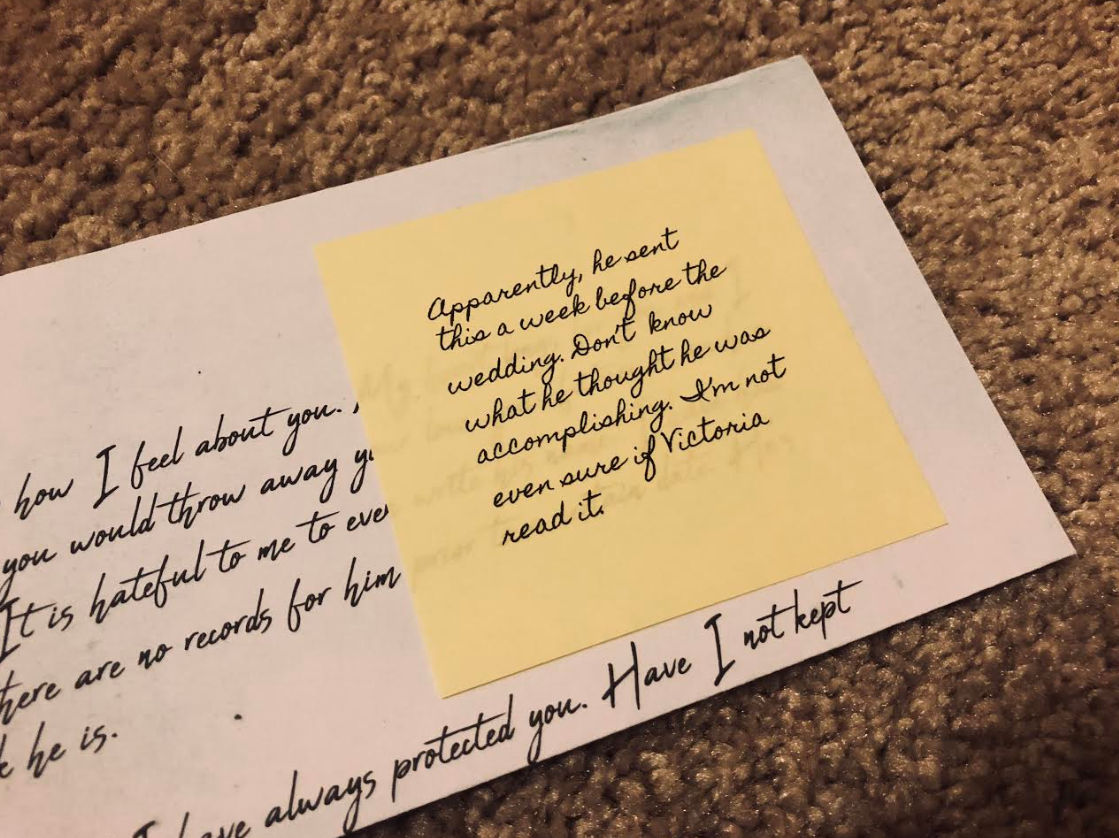 Apparently, he sent
this a week before the
wedding. Don't know
what he thought he was
accomplishing. I'm not
even sure if Victoria
read it.
how I feel about you.
you would throw away
It is hateful to me to
there are no records for him
he is.
I have always protected you. Have I not kept